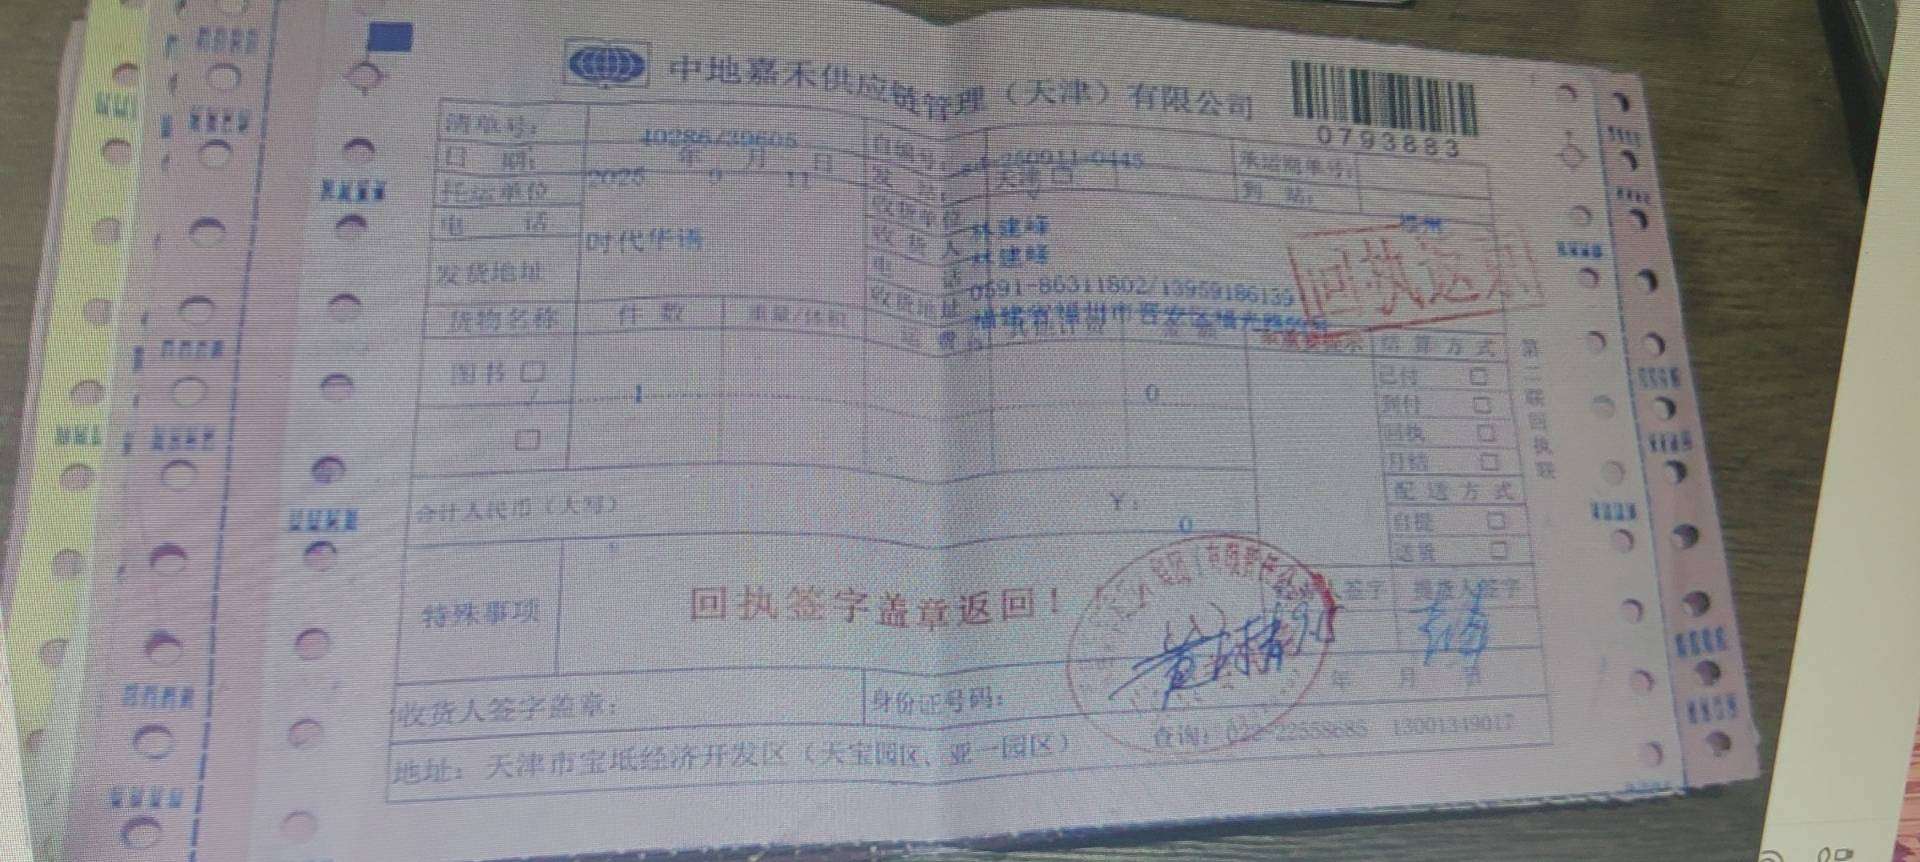 中地嘉禾供应链管理（天津）有限公司
0793883
清单号： 40286/39605 自编号： 250911-0445 承运商单号：
日 期： 2025 年 9 月 11 日 发 站： 天津 到 站： 福州
托运单位 时代华语 收货单位 林建峰
电 话 收 货 人 林建峰
电 话 0591-86311802/13959186139
发货地址 收货地址
回执返
货物名称 件 数 重量/体积 运 费 结 算 方 式
图书 1 0 已付
到付
回执
月结
配 送 方 式
合计人民币（大写） ￥： 0 自提
送货
第二联回执联
特殊事项 回执签字盖章返回！ 人签字 提货人签字
收货人签字盖章： 身份证号码： 年 月 日
地址： 天津市宝坻经济开发区（天宝园区、亚一园区） 查询： 022-22558685 13001349017